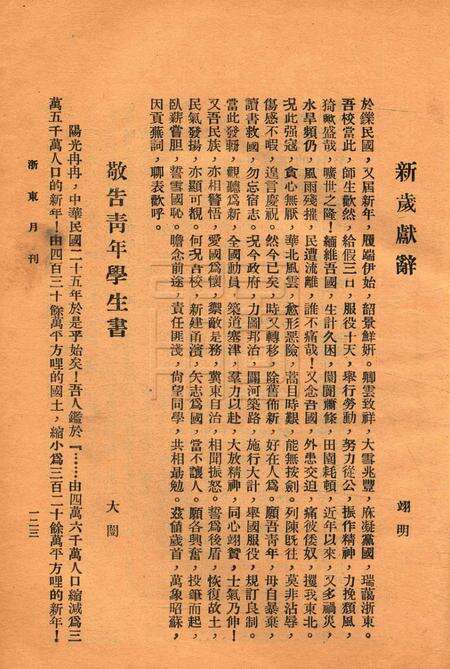 新歲獻辭
翊明
於鑠民國，又屆新年，履端伊始，韶景鮮妍。卿雲致祥，大雪兆豐，庥凝黨國，瑞藹浙東。
吾校當此，師生歡然，給假三日，服役十天，舉行勞動，努力從公，振作精神，力挽頹風，
猗歟盛哉，曠世之隆！緬維吾國，生計久困，閭閻蕭條，田園耗頓，近年以來，又多禍災，
水旱頻仍，風雨殘摧，民遭流離，誰不痛哉！又念吾國，外患交迫，痛彼倭奴，攫我東北。
況此强寇，貪心無厭，華北風雲，愈形惡險，蒿目時艱，能無按劍。列陳既往，莫非沾辱，
傷感不暇，遑言慶祝。然今已矣，時又轉移，除舊佈新，好在人為。願吾青年，毋自暴棄，
讀書救國，勿忘宿志。況今政府，力圖邦治，闢河築路，施行大計，舉國服役，規訂良制。
當此發軔，觀聽為新，全國動員，築道塞津，羣力以赴，大放精神，同心翊贊，士氣乃伸！
又吾民族，亦相警悟，愛國為懷，禦敵是務，冀東自治，相聞振怒。誓為後盾，恢復故土，
民氣發揚，亦顯可覩。何況吾校，新建甬濱，矢志為國，當不讓人。願各奮勵，投筆而起，
臥薪嘗胆，誓雪國恥。瞻念前途，責任匪淺，尚望同學，共相勗勉。茲値歲首，萬象昭蘇，
因貢蕪詞，聊表歡呼。
敬告青年學生書
大閎
陽光冉冉，中華民國二十五年於是乎始矣！吾人鑑於『……由四萬六千萬人口縮減為三
萬五千萬人口的新年！由四百三十餘萬平方哩的國土，縮小為三百二十餘萬平方哩的新年！
浙東月刊
一二三